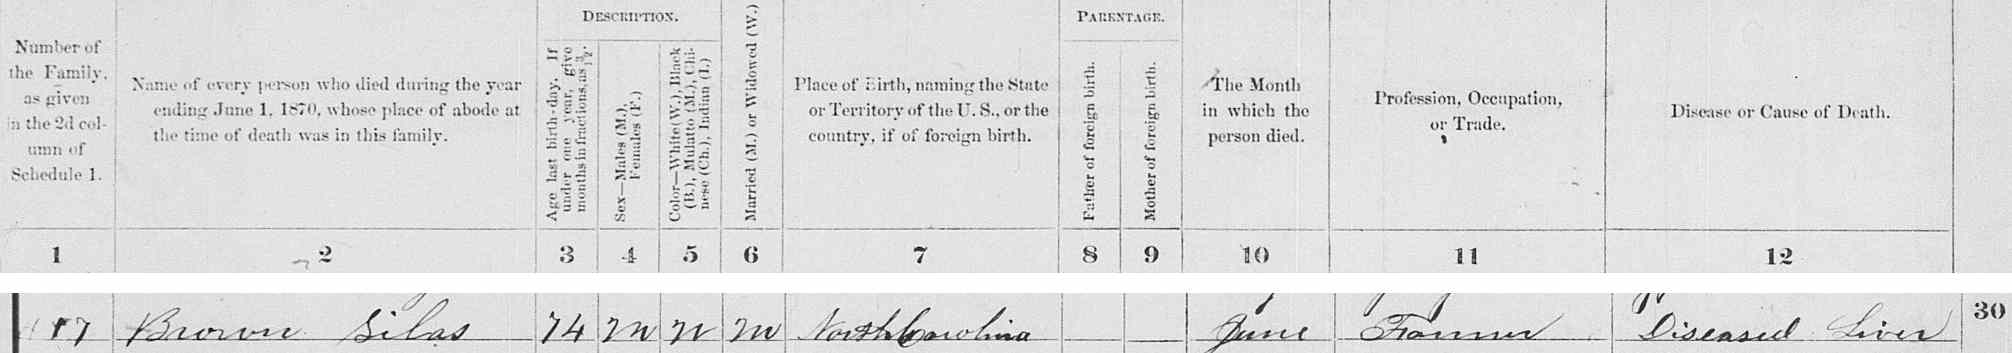 DESCRIPTION.
PARENTAGE.
Number of
the Family,
as given
in the 2d col-
umn of
Schedule 1.
Name of every person who died during the year
ending June 1, 1870, whose place of abode at
the time of death was in this family.
Age last birth-day. If
under one year, give
months in fractions, as 3/12.
Sex—Males (M.),
Females (F.)
Color—White (W.), Black
(B.), Mulatto (M.), Chi-
nese (Ch.), Indian (I.)
Married (M.) or Widowed (W.)
Place of Birth, naming the State
or Territory of the U. S., or the
country, if of foreign birth.
Father of foreign birth.
Mother of foreign birth.
The Month
in which the
person died.
Profession, Occupation,
or Trade.
Disease or Cause of Death.
1 2 3 4 5 6 7 8 9 10 11 12
Brown Silas 74 M W M North Carolina June Farmer Diseased Liver 30